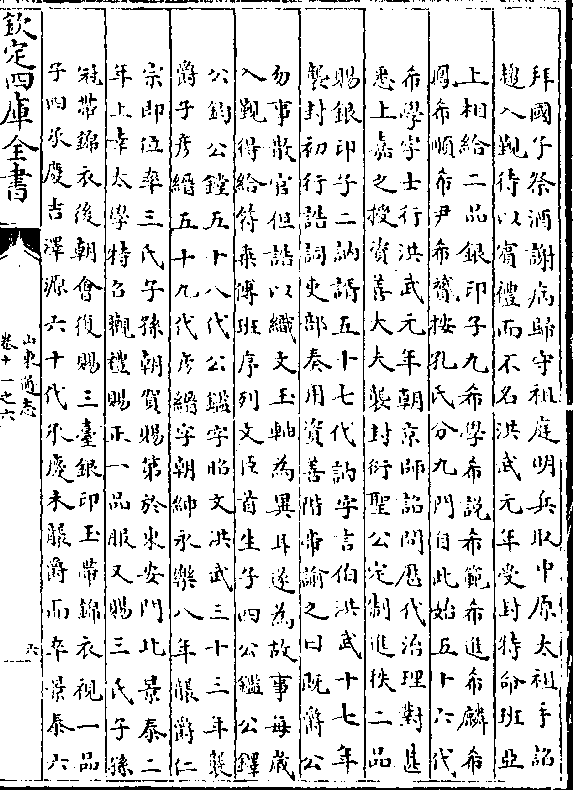 拜國子祭酒謝病歸守祖庭明兵取中原太祖手詔
趣入覲待以賓禮而不名洪武元年受封特命班亞
上相給二品銀印子九希學希說希範希進希麟希
鳳希順希尹希贇按孔氏分九門自此始五十六代
希學字士行洪武元年朝京師詔問歷代治理對進
悉上嘉之授資善大夫襲封衍聖公定制進秩二品
賜銀印子二訥諝五十七代訥字言伯洪武十七年
襲封初行誥詞吏部奏用資善階帝諭之曰既爵公
勿事散官但誥以織文玉軸為異耳遂為故事每歲
入覲得給符乘傳班序列文臣首生子四公鑑公鐸
公鈞公鏜五十八代公鑑字昭文洪武三十三年襲
爵子彥縉五十九代彥縉字朝紳永樂八年襲爵仁
宗即位率三氏子孫朝賀賜第於東安門北景泰二
年上幸太學特召觀禮賜正一品服又賜三氏子孫
冠帶錦衣後朝會復賜三臺銀印玉帶錦衣視一品
子四承慶吉澤源六十代承慶未襲爵而卒景泰六
欽定四庫全書
山東通志
卷十一之六